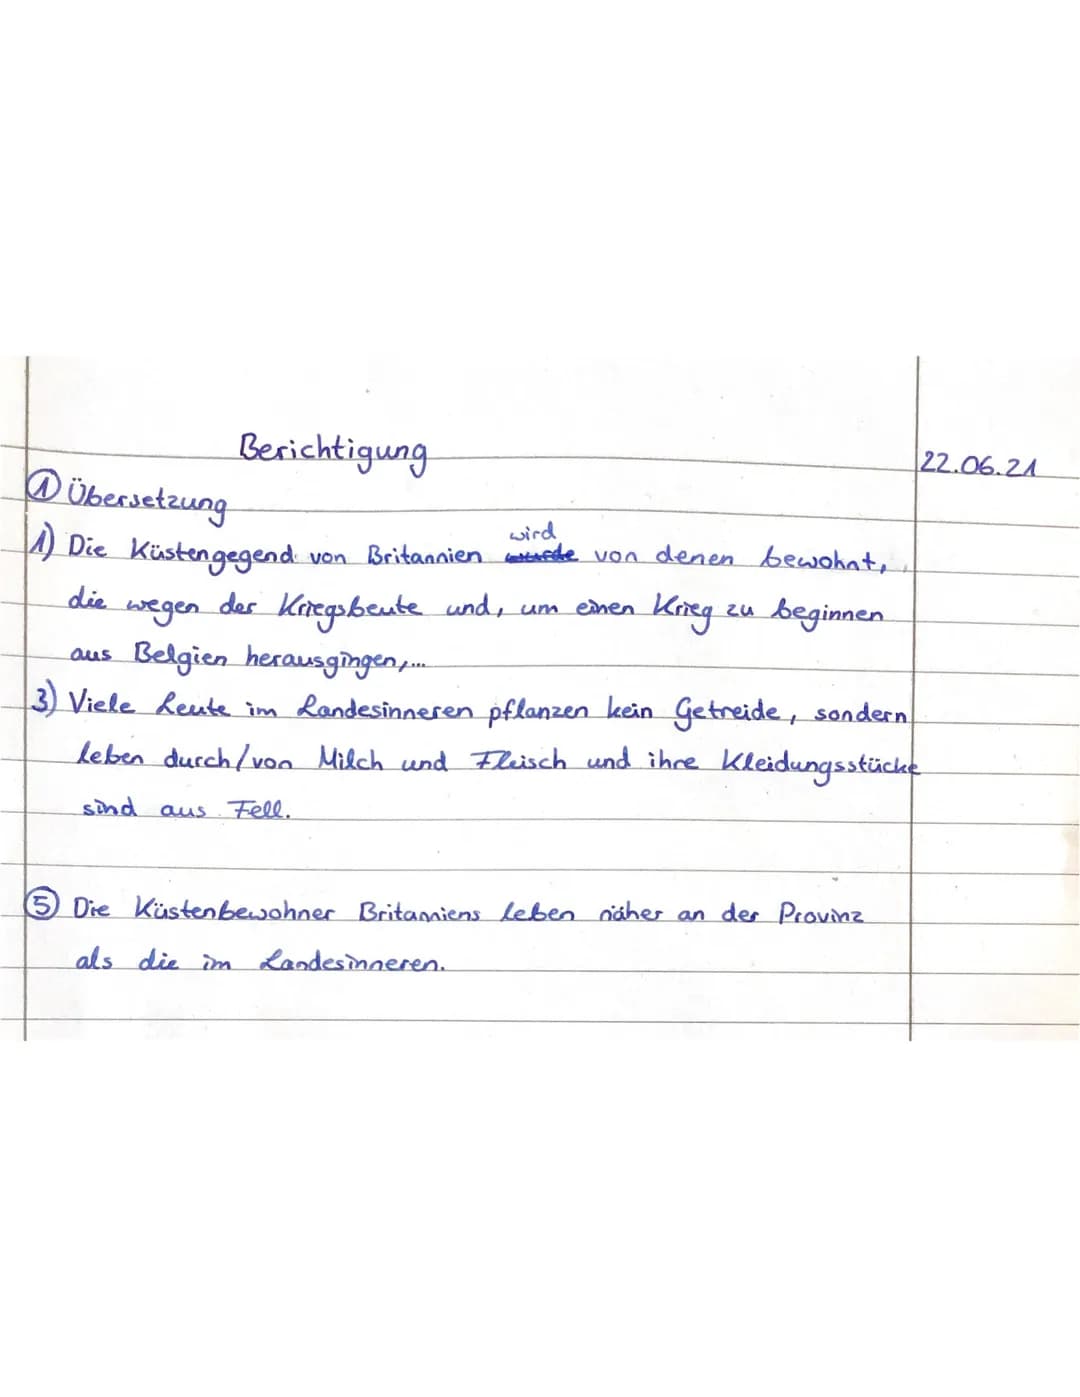 Berichtigung 22.06.21
① Übersetzung
wird
1) Die Küstengegend von Britannien wurde von denen bewohnt,
die wegen der Kriegsbeute und, um einen Krieg zu beginnen
aus Belgien herausgingen,...
3) Viele Leute im Landesinneren pflanzen kein Getreide, sondern
leben durch/von Milch und Fleisch und ihre Kleidungsstücke
sind aus Fell.
⑤ Die Küstenbewohner Britanniens leben näher an der Provinz
als die im Landesinneren.